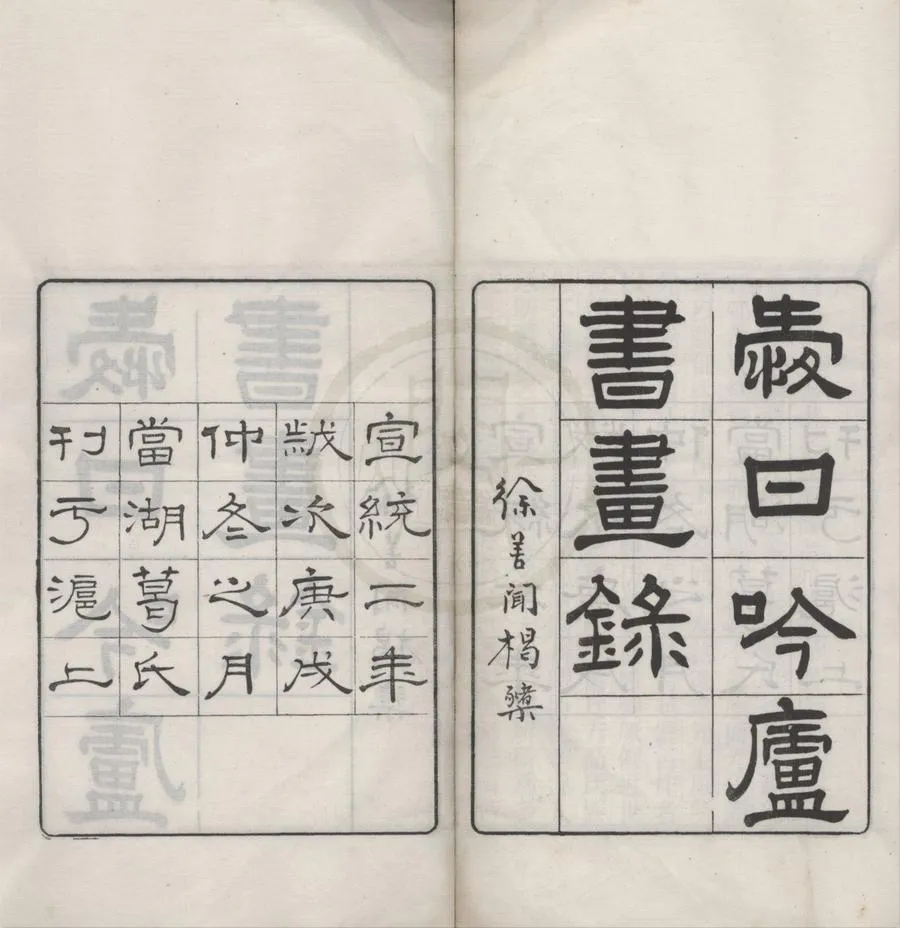 愛日吟廬
書畫錄
徐善聞楬櫫
宣統二年
歲次庚戌
仲冬之月
當湖葛氏
刊亏滬上